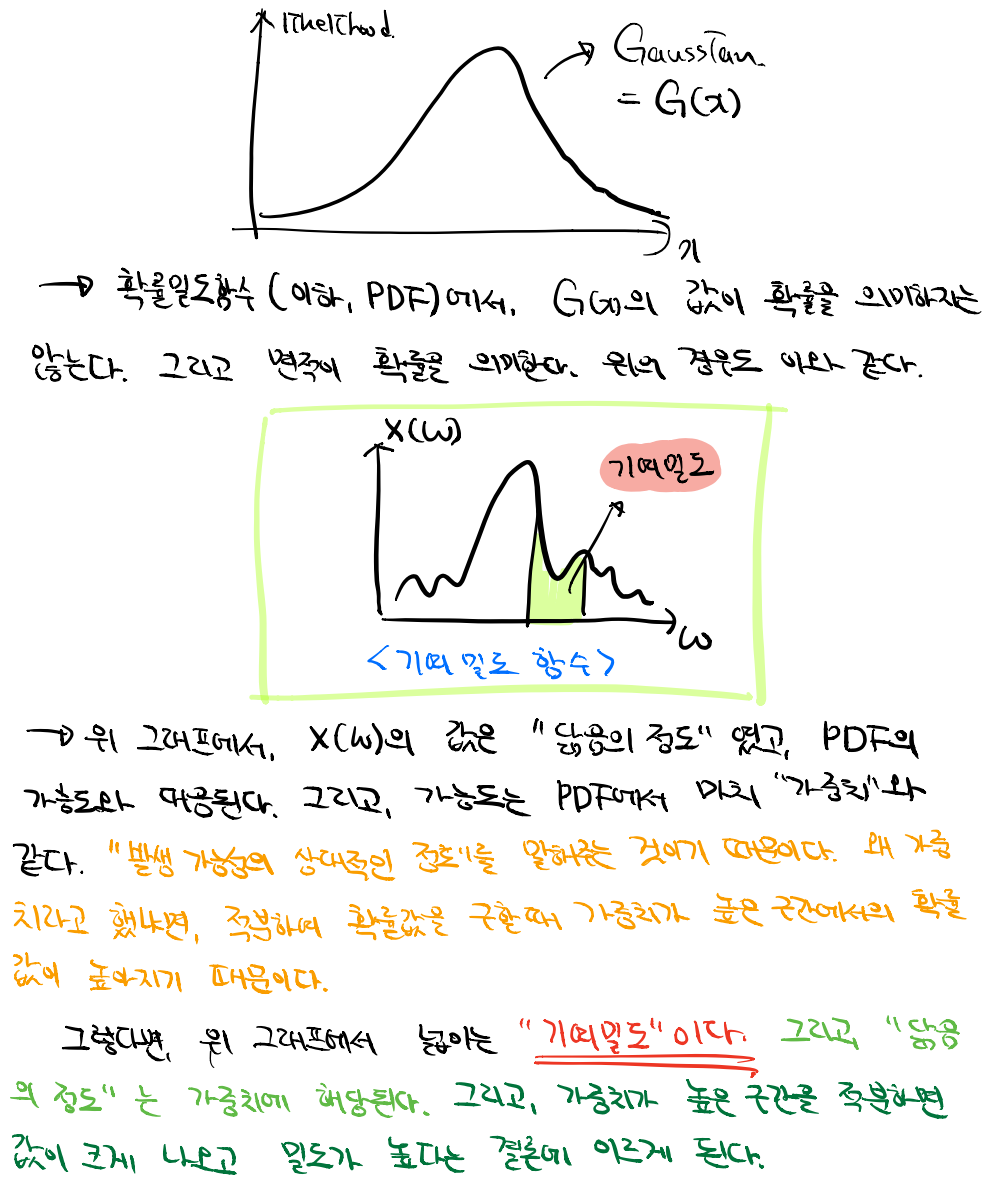 likelihood.
Gaussian
= G(x)
x
→ 확률밀도함수 (이하, PDF)에서, G(x)의 값이 확률을 의미하지는
않는다. 그리고 면적이 확률을 의미한다. 위의 경우도 이와 같다.
X(ω)
기여밀도
ω
<기여밀도 함수>
→ 위 그래프에서, X(ω)의 값은 "닮음의 정도"였고, PDF의
가능도와 대응된다. 그리고, 가능도는 PDF에서 마치 "가중치"와
같다. "발생 가능성의 상대적인 정도"를 말해주는 것이기 때문이다. 왜 가중
치라고 했냐면, 적분하여 확률값을 구할때 가중치가 높은 구간에서의 확률
값이 높아지기 때문이다.
그렇다면, 위 그래프에서 넓이는 "기여밀도"이다. 그리고, "닮음
의 정도"는 가중치에 해당된다. 그리고, 가중치가 높은 구간을 적분하면
값이 크게 나오고 밀도가 높다는 결론에 이르게 된다.